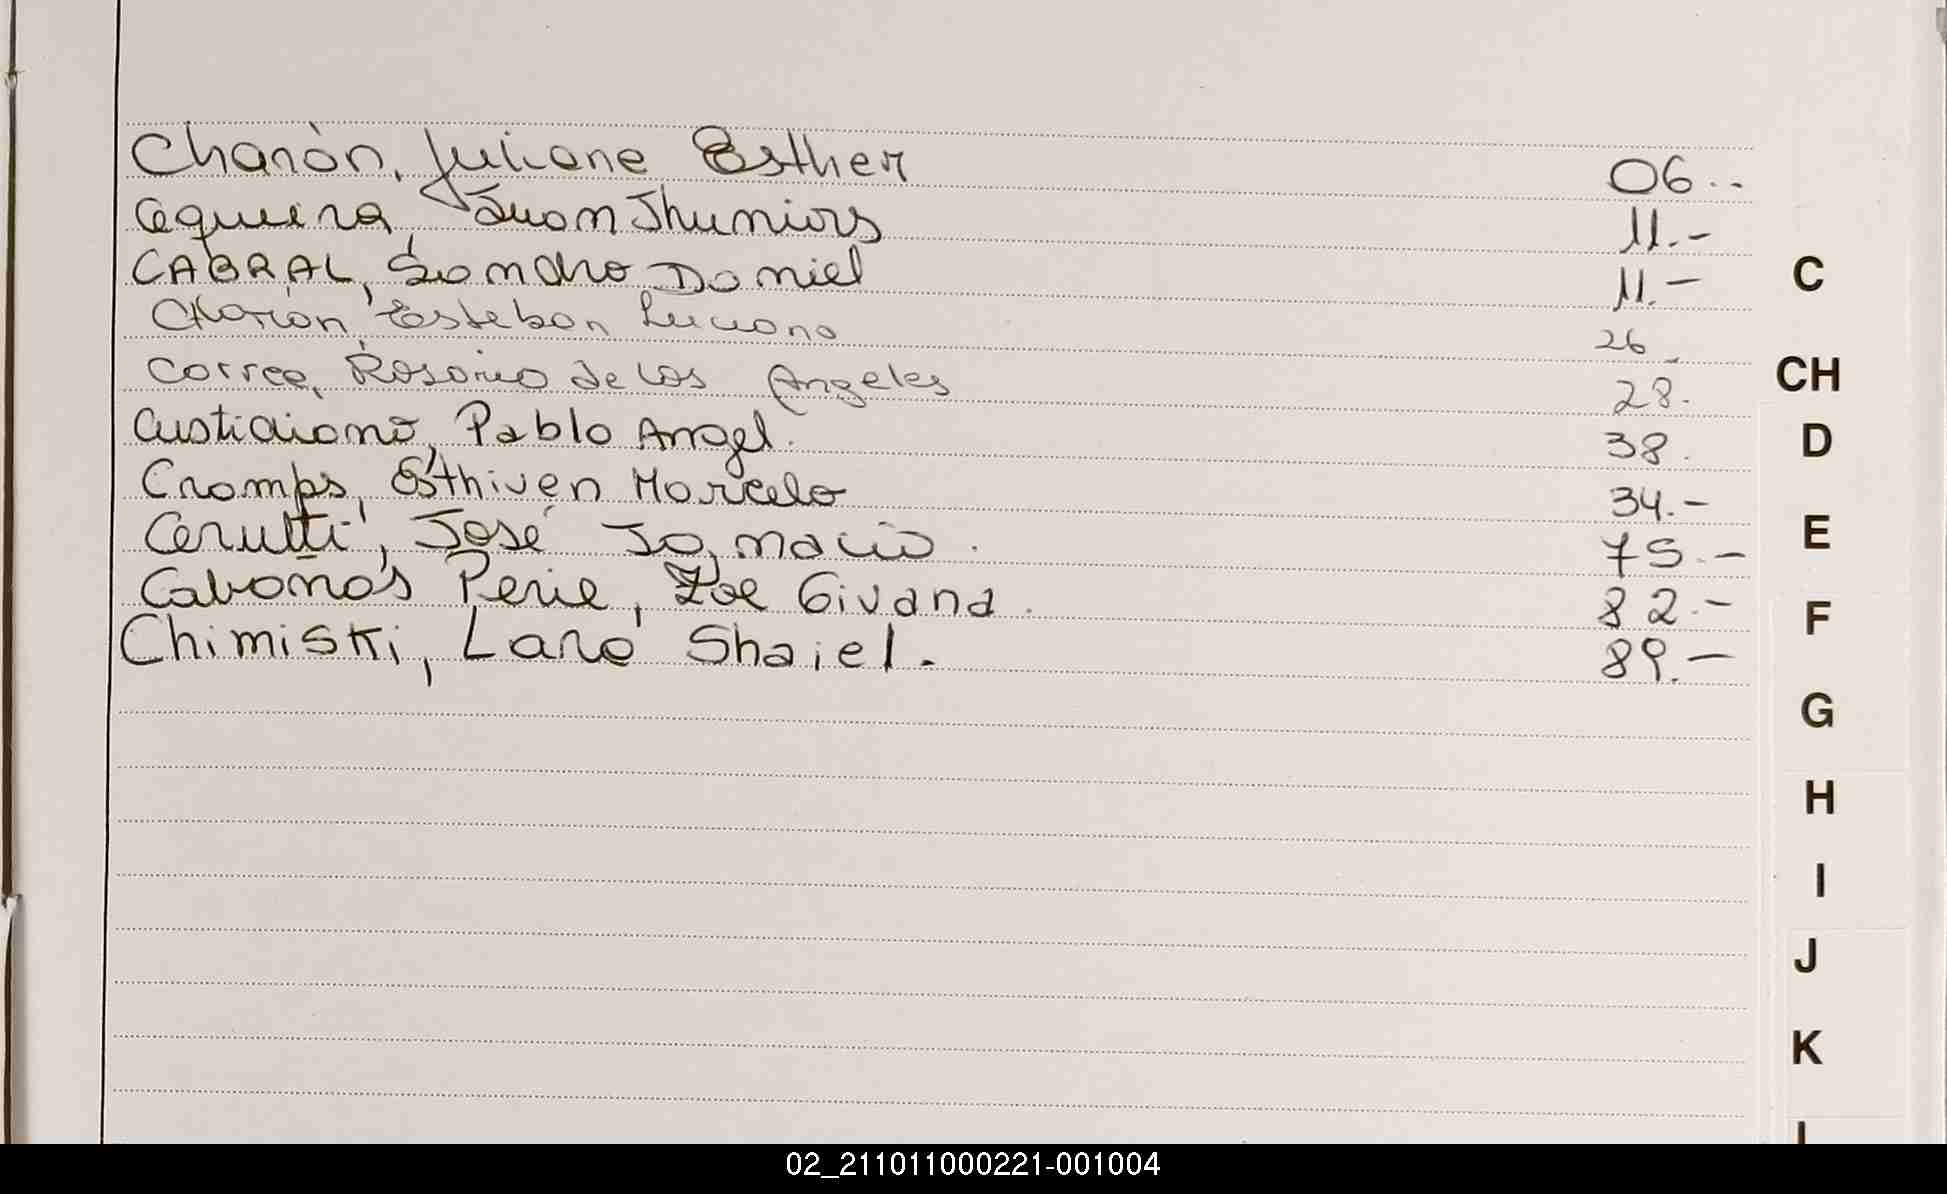 Charión, Juliana Esther 06..
Cequeira, Juan Jhuniors 11.-
CABRAL, Sandro Daniel 11.-
C
Charión Esteban Luciano 26-
Correa, Rosario de los Angeles 28.
CH
Custidiano, Pablo Angel. 38.
D
Cramps, Esthiven Marcelo 34.-
Cerutti, José Ignacio. 75.-
E
Cabañas Perie, Zoe Givana. 82.-
F
Chimiski, Lara Shaiel. 89.-
G
H
I
J
K
L
02_211011000221-001004